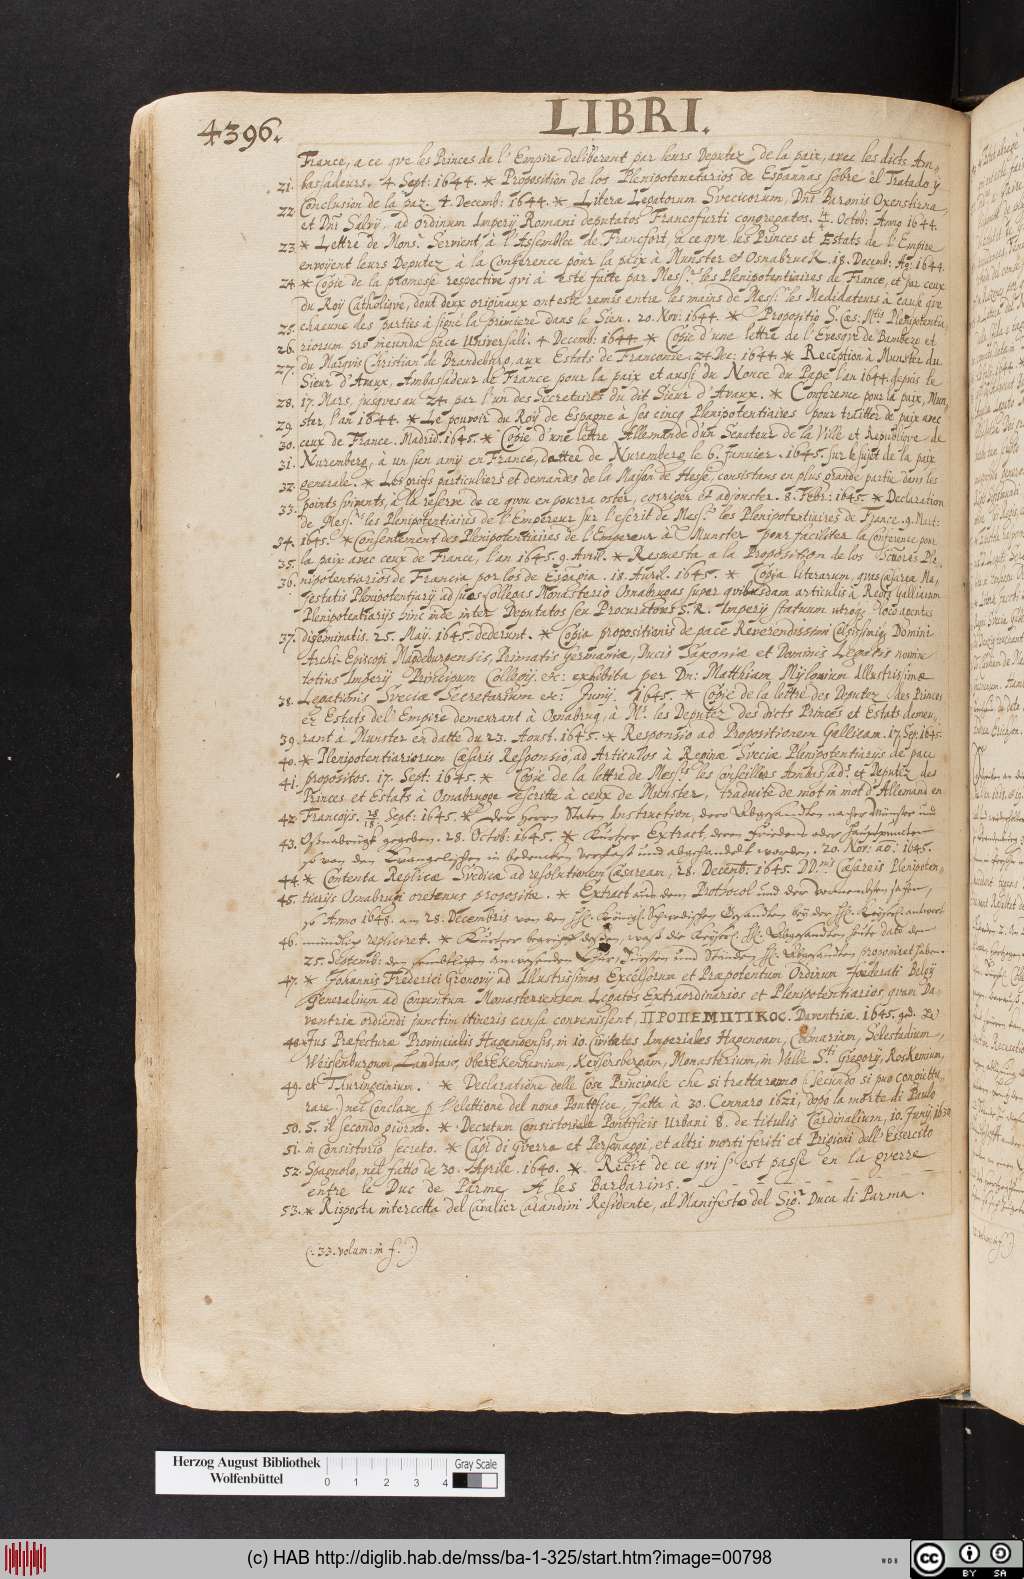 4396.
LIBRI.
France, a ce qve les Princes de l'Empire deliberent par leurs Deputez de la paix, avec les dicts Am-
21. bassadeurs. 4. Sept: 1644. * Proposition de los Plenipotenetarios de Espannas sobre el Tratado y
22. Conclusion de la paz. 4. Decemb: 1644. * Literæ Legatorum Svecicorum, Dni Baronis Oxenstirna,
et Dni Salvij, ad ordinum Imperij Romani deputatos Francofurti congregatos. Octob: Anno 1644.
23 * Lettre de Mons. Servient à l'Assemblée de Francfort, a ce qve les Princes et Estats de l'Empire
envoyent leurs Deputez à la Conference pour la paix à Munster et Osnabruck. 18. Decemb: Aº. 1644.
24. * Copie de la promesse respective qvi à esté faite par Mess.rs les Plenipotentiaires de France, et par ceux
du Roy Catholiqve, dont deux originaux ont esté remis entre les mains de Mess.rs les Mediateurs à cause qve
25. chacune des parties à signé la primiere dans le Sien. 20. Nov: 1644. * Propositio S. Cæs: Mtis Plenipotentia,
26. riorum pro ineunda pace Universali. 4. Decemb: 1644. * Copie d'une lettre de l'Evesqve de Bamberg et
27. du Marqvis Christian de Brandeburg, aux Estats de Franconie. 24 Dec: 1644. * Reception à Munster du
Sieur d'Avaux, Ambassadeur de France pour la paix et aussi du Nonce du Pape l'an 1644. depuis le
28. 17. Mars, jusqves au 24. par l'un des Secretaires du dit Sieur d'Avaux. * Conference pour la paix, Mun,
29. ster, l'an 1644. * Le pouvoir du Roy de Espagne à ses cincq Plenipotentiaires pour traitter de paix avec
30. ceux de France. Madrid. 1645. * Copie d'une lettre Allemande d'un Senateur de la Ville et Republiqve de
31. Nuremberg, à un sien amy en France, dattee de Nuremberg le 6. Janvier. 1645. sur le sujet de la paix
32. generale. * Les griefs particuliers et demandes de la Maison de Hesse, consistans en plus grande partie dans les
33. points suivants, à la reserve de ce qvon en pourra oster, corriger et adjouster. 8. Febr: 1645. * Declaration
de Mess.rs les Plenipotentiaires de l'Empereur sur l'escrit de Mess.rs les Plenipotentiaires de France. 9. Mart:
34. 1645. * Consentement des Plenipotentiaires de l'Empereur à Munster pour faciliter la Conference pour
35. la paix avec ceux de France, l'an 1645. 9. Avril. * Respuesta a la Proposition de los Señores Ple,
36. nipotentiarios de Francia por los de Espagia. 18. Avril. 1645. * Copia literarum, qvas Cæsarea Ma,
jestatis Plenipotentiarij ad suos Collegas Monasterio Osnabrugas super qvibusdam articulis à Regis Galliarum
Plenipotentiarijs hinc inde inter Deputatos seu Procuratores S. R. Imperij statuum utroq; loco agentes
37. disseminatis. 25. Maij. 1645. dederunt. * Copia propositionis de pace Reverendissimi Celsissimiq; Domini
Archi-Episcopi Magdeburgensis, Primatis Germaniæ, Ducis Saxoniæ et Dominis Legatis nomine
totius Imperij Principum Collegij. &c: exhibita per Dn: Matthiam Mylonium Illustrissimæ
38. Legationis Sveciæ Secretarium ex: Junij. 1645. * Copie de la lettre des Deputez des Princes
et Estats del' Empire demeurant à Osnabrug, à Mrs. les Deputez des dicts Princes et Estats demeu,
39. rant à Munster en datte du 23. Aoust. 1645. * Responsio ad Propositionem Gallicam. 17. Sep. 1645.
40. * Plenipotentiariorum Cæsaris Responsio, ad Articulos à Reginæ Sveciæ Plenipotentiarijs de pace
41. propositos. 17. Sept: 1645. * Copie de la lettre de Mess.rs les Conseillers Ambassad.rs et Deputez des
Princes et Estats à Osnabrugge escritte à ceux de Munster, traduite de mot in mot d'Allemand en
42. Françoys. Sept: 1645. * Der Herrn Staten Instruction, dero Abgesandten nacher Münster und
43. Osnabrügk gegeben. 28. Octob: 1645. * Kurtzer Extract, deren Friedens oder Hauptpuncten
so von den Evangelischen in bedencken verfast und abgehandelt worden. 20. Nov: ao: 1645.
44. * Contenta Replicæ Svedicæ ad resolutionem Cæsaream, 28. Decemb: 1645. DD.nis Cæsareis Plenipoten-
45. tiarijs Osnabrugi oretenus propositæ. * Extract aus dem Protocol und der
so Anno 1648. am 28. Decembris von den Königl: Schwedischen Gesandten
46. mündlich repliciret. * Kurtzer begriff dessen, was die Abgesandten
25. Septemb: den Chur, Fürsten und Ständen Abgesandten proponiret haben.
47. * Johannis Frederici Gronovij ad Illustrissimos Excellorum et Præpotentum Ordinum foederati Belgij
Generalium ad Conventum Monasteriensem Legatos Extraordinarios et Plenipotentiarios, qvum Da-
ventriæ ordiendi junctim itineris causa convenissent, ΠΡΟΠΕΜΠΤΙΚΟΣ. Daventriæ. 1645.
48. * Jus Præfecturæ Provincialis Hagenoensis, in 10. Civitates Imperiales Hagenoam, Colmariam, Selestadium,
Weissenburgum, Landtau, Oberekenhemium, Keysersbergam, Monasterium, in Valle S.ti Gregorij, Roshemium,
49. et Thuringeinium. * Declaratione delle Cose Principale che si trattaranno (secondo si puo conjettu,
rare) nel Conclave p l'elettione del novo Pontefice, fatta à 30. Cennaro 1621, dopo la morte di Paulo
50. 5. il secondo giorno. * Decretum Consistoriale Pontificis Urbani 8. de titulis Cardinalium, 10. Junij, 1630
51. in Consistorio secreto. * Capi di Gverra et Personaggi, et altri morti feriti et Prigioni dell' Essercito
52. Spagnolo, nel fatto de 30. Aprile. 1640. * Recit de ce qvi s'est passé en la gverre
entre le Duc de Parme & les Barbarins.
53. * Risposta intercetta del Cavalier Carandini Residente, al Manifesto del Sig.r Duca di Parma.
(: 33. volum: in f. :)
Herzog August Bibliothek
Wolfenbüttel
0 1 2 3 4
Gray Scale
(c) HAB http://diglib.hab.de/mss/ba-1-325/start.htm?image=00798
WDB
cc BY SA